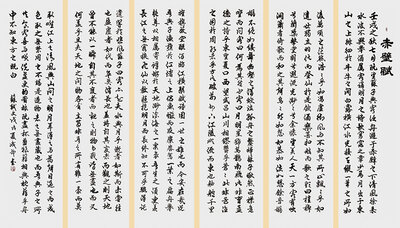 赤壁賦
壬戌之秋七月既望蘇子與客泛舟遊於赤壁之下清風徐來
水波不興舉酒屬客誦明月之詩歌窈窕之章少焉月出於東
山之上徘徊於斗牛之間白露橫江水光接天縱一葦之所如
凌萬頃之茫然浩浩乎如馮虛御風而不知其所止飄飄乎如
遺世獨立羽化而登仙於是飲酒樂甚扣舷而歌之歌曰桂棹兮
蘭槳擊空明兮泝流光渺渺兮予懷望美人兮天一方客有吹
洞簫者倚歌而和之其聲嗚嗚然如怨如慕如泣如訴餘音嫋
嫋不絕如縷舞幽壑之潛蛟泣孤舟之嫠婦蘇子愀然正襟危
坐而問客曰何為其然也客曰月明星稀烏鵲南飛此非曹孟
德之詩乎西望夏口東望武昌山川相繆鬱乎蒼蒼此非孟德
之困於周郎者乎方其破荊州下江陵順流而東也舳艫千里
旌旗蔽空釃酒臨江橫槊賦詩固一世之雄也而今安在哉況
吾與子漁樵於江渚之上侶魚蝦而友麋鹿駕一葉之扁舟舉
匏樽以相屬寄蜉蝣於天地渺滄海之一粟哀吾生之須臾羨
長江之無窮挾飛仙以遨遊抱明月而長終知不可乎驟得託
遺響於悲風蘇子曰客亦知夫水與月乎逝者如斯而未嘗往
也盈虛者如彼而卒莫消長也蓋將自其變者而觀之則天地
曾不能以一瞬自其不變者而觀之則物與我皆無盡也而又
何羨乎且夫天地之間物各有主苟非吾之所有雖一毫而莫
取惟江上之清風與山間之明月耳得之而為聲目遇之而成
色取之無禁用之不竭是造物者之無盡藏也而吾與子之所
共食客喜而笑洗盞更酌肴核既盡杯盤狼藉相與枕藉乎舟
中不知東方之既白